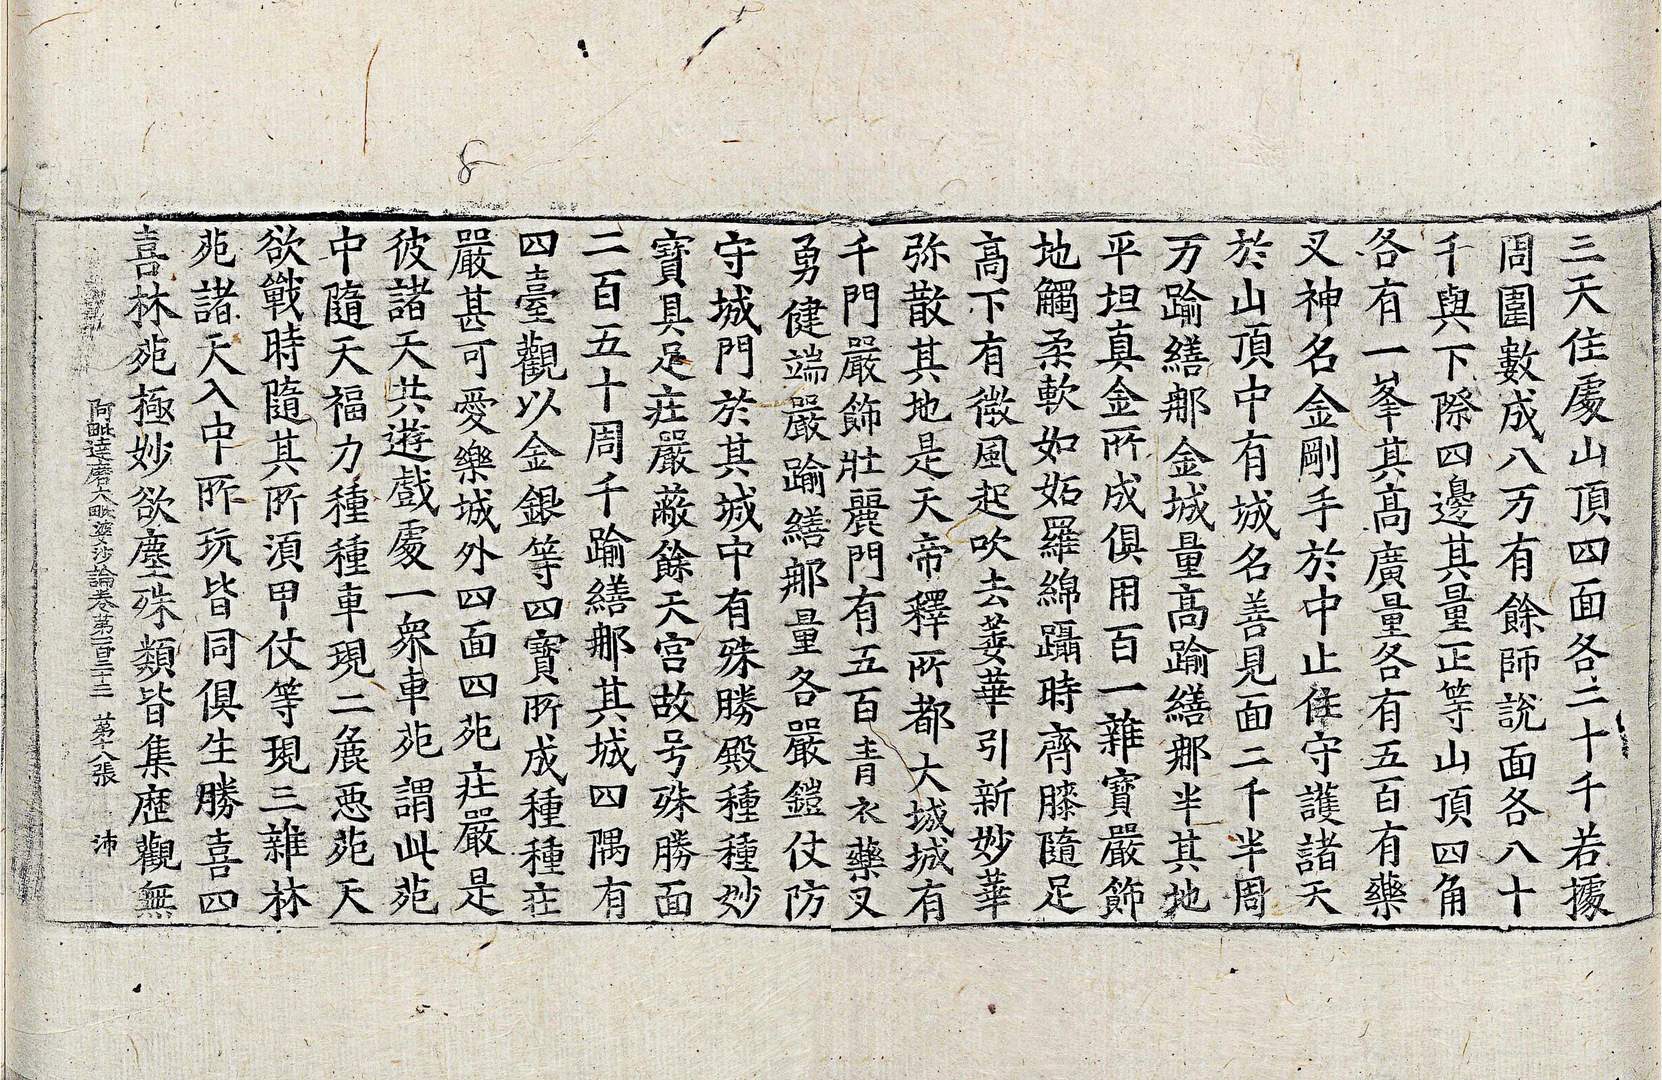 三天住處山頂四面各二十千若據
周圍數成八万有餘師說面各八十
千與下際四邊其量正等山頂四角
各有一峯其高廣量各有五百有藥
叉神名金剛手於中止住守護諸天
於山頂中有城名善見面二千半周
万踰繕那金城量高踰繕那半其地
平坦真金所成俱用百一雜寶嚴飾
地觸柔軟如妬羅綿躡時齊膝隨足
高下有微風起吹去萎華引新妙華
弥散其地是天帝釋所都大城城有
千門嚴飾壯麗門有五百青衣藥叉
勇健端嚴踰繕那量各嚴鎧仗防
守城門於其城中有殊勝殿種種妙
寶具足庄嚴蔽餘天宮故号殊勝面
二百五十周千踰繕那其城四隅有
四臺觀以金銀等四寶所成種種庄
嚴甚可愛樂城外四面四苑庄嚴是
彼諸天共遊戲處一衆車苑謂此苑
中隨天福力種種車現二麁惡苑天
欲戰時隨其所湏甲仗等現三雜林
苑諸天入中所玩皆同俱生勝喜四
喜林苑極妙欲塵殊類皆集歷觀無
阿毗達磨大毗婆沙論卷第一百三十三 第十八張 沛
8